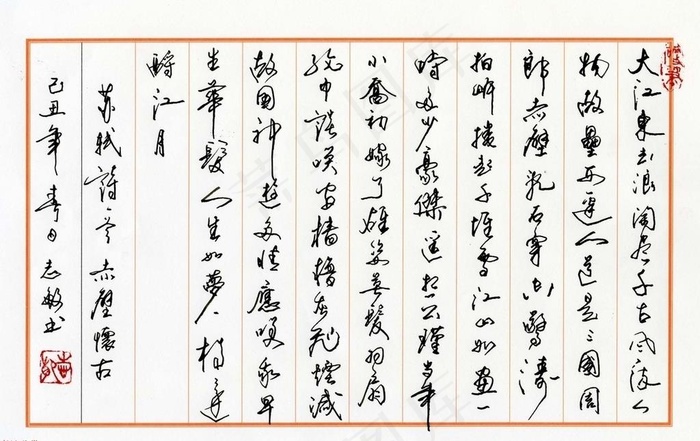 大江東去浪淘尽千古风流人
物故壘西邊人道是三國周
郎赤壁乱石穿空驚濤
拍岸捲起千堆雪江山如畫一
時多少豪傑遥想公瑾当年
小喬初嫁了雄姿英發羽扇
纶巾談笑间樯櫓灰飛煙滅
故国神遊多情應笑我早
生華髮人生如夢一樽還
酹江月
苏軾赤壁懷古
己丑年春日志敏书